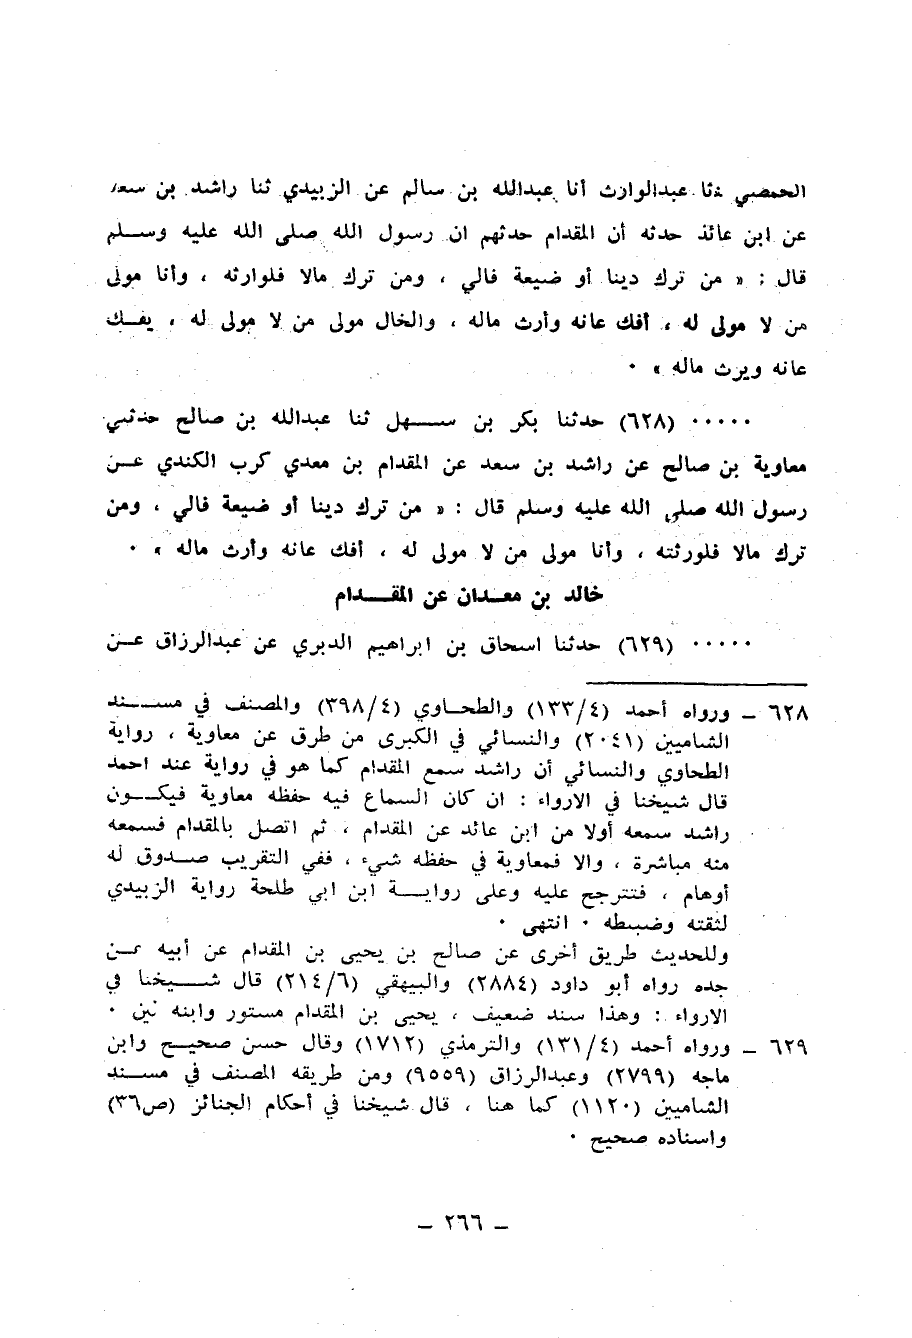 الحمصي ثنا عبدالوارث أنا عبدالله بن سالم عن الزبيدي ثنا راشد بن سعد
عن ابن عائذ حدثه أن المقدام حدثهم ان رسول الله صلى الله عليه وسلم
قال : « من ترك دينا أو ضيعة فالي ، ومن ترك مالا فلوارثه ، وأنا مولى
من لا مولى له ، أفك عانه وأرث ماله ، والخال مولى من لا مولى له ، يفك
عانه ويرث ماله » ٠
٠٠٠٠٠ (٦٢٨) حدثنا بكر بن سهل ثنا عبدالله بن صالح حدثني
معاوية بن صالح عن راشد بن سعد عن المقدام بن معدي كرب الكندي عن
رسول الله صلى الله عليه وسلم قال : « من ترك دينا أو ضيعة فالي ، ومن
ترك مالا فلورثته ، وأنا مولى من لا مولى له ، أفك عانه وأرث ماله » ٠
خالد بن معدان عن المقدام
٠٠٠٠٠ (٦٢٩) حدثنا اسحاق بن ابراهيم الدبري عن عبدالرزاق عن
٦٢٨ – ورواه أحمد (٤/١٣٣) والطحاوي (٤/٣٩٨) والمصنف في مسند
الشاميين (٢٠٤١) والنسائي في الكبرى من طرق عن معاوية ، رواية
الطحاوي والنسائي أن راشد سمع المقدام كما هو في رواية عند احمد
قال شيخنا في الارواء : ان كان السماع فيه حفظه معاوية فيكون
راشد سمعه أولا من ابن عائذ عن المقدام ، ثم اتصل بالمقدام فسمعه
منه مباشرة ، والا فمعاوية في حفظه شيء ، ففي التقريب صدوق له
أوهام ، فتترجح عليه وعلى رواية ابن ابي طلحة رواية الزبيدي
لثقته وضبطه ٠ انتهى ٠
وللحديث طريق أخرى عن صالح بن يحيى بن المقدام عن أبيه عن
جده رواه أبو داود (٢٨٨٤) والبيهقي (٦/٢١٤) قال شيخنا في
الارواء : وهذا سند ضعيف ، يحيى بن المقدام مستور وابنه لين ٠
٦٢٩ – ورواه أحمد (٤/١٣١) والترمذي (١٧١٢) وقال حسن صحيح وابن
ماجه (٢٧٩٩) وعبدالرزاق (٩٥٥٩) ومن طريقه المصنف في مسند
الشاميين (١١٢٠) كما هنا ، قال شيخنا في أحكام الجنائز (ص٣٦)
واسناده صحيح ٠
– ٢٦٦ –